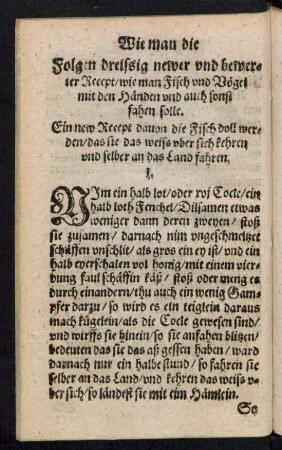 Wie man die
Folgen dreissig newer vnd bewer-
ter Recept/ wie man Fisch vnd Vögel
mit den Händen vnd auch sonst
fahen solle.
Ein new Recept dauon die Fisch doll wer-
den/ das sie das weiss vber sich kehren
vnd selber an das Land fahren.
I.
NIm ein halb lot/ oder roj Cocle/ ein
halb loth Fenchel/ Dilsamen etwas
weniger dann deren zweyen/ stoß
sie zusamen/ darnach nim vngeschmeltzet
schäffen vnschlit/ als gros ein ey ist/ vnd ein
halb eyerschalen vol honig/ mit einem vier-
dung faul schäffin käß/ stoß oder meng es
durch einandern/ thu auch ein wenig Gam-
pfer darzu/ so wird es ein teiglein daraus
mach kügelein/ als die Cocle gewesen sind/
vnd wirffs sie hinein/ so sie anfahen blitzen/
bedeuten das sie das aß gessen haben/ ward
darnach nur ein halbe stund/ so fahren sie
selber an das Land/ vnd kehren das weiss v-
ber sich/ so ländest sie mit eim Hämlein.
So